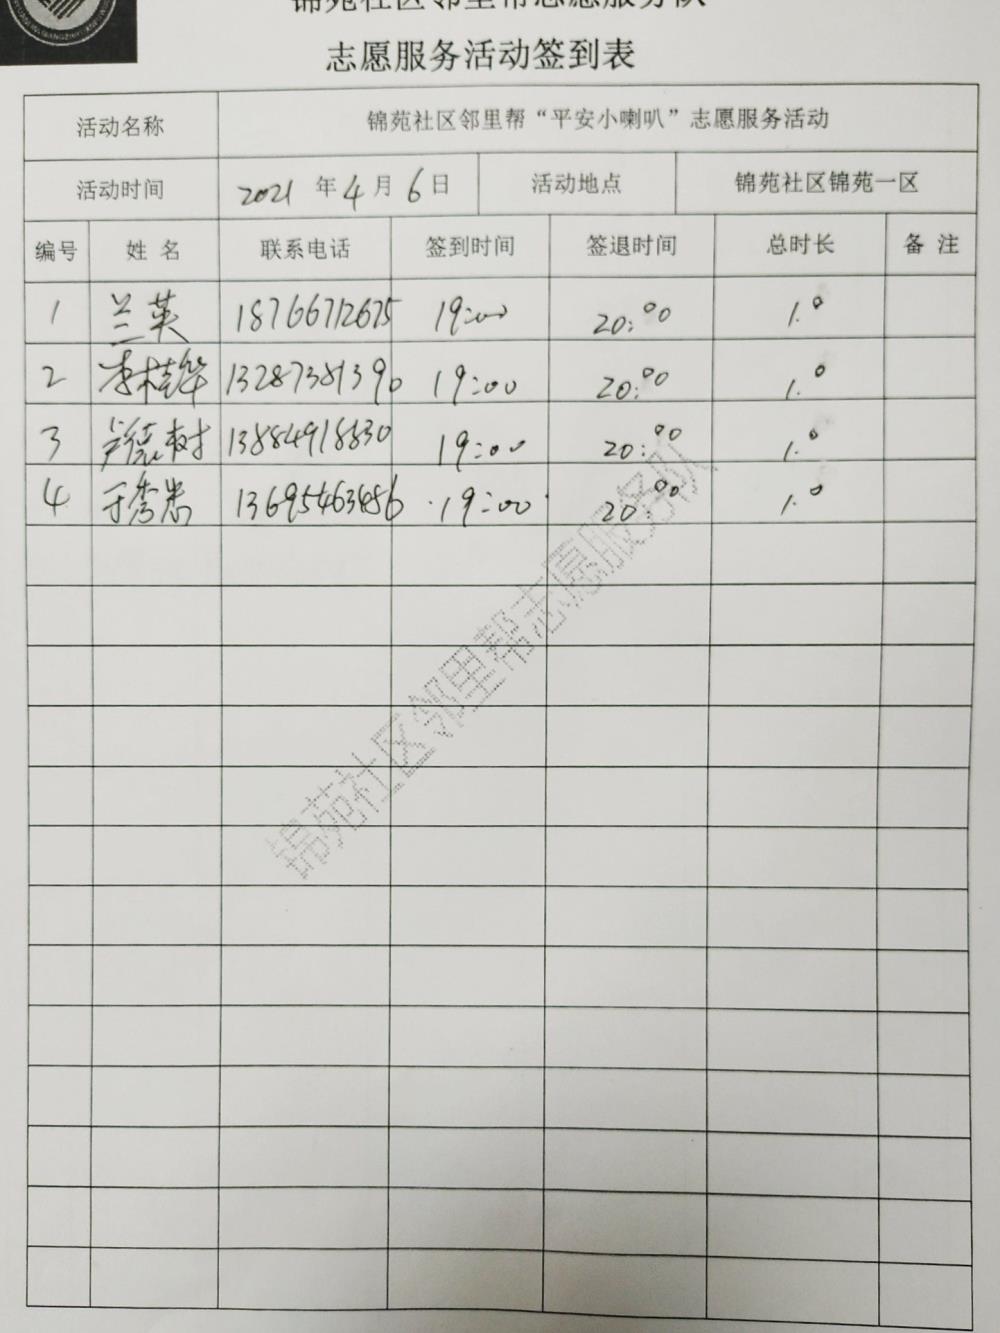 锦苑社区邻里帮志愿服务队
志愿服务活动签到表
活动名称 锦苑社区邻里帮“平安小喇叭”志愿服务活动
活动时间 2021 年 4 月 6 日 活动地点 锦苑社区锦苑一区
编号 姓 名 联系电话 签到时间 签退时间 总时长 备 注
1 兰英 18766712675 19:00 20:00 1.0
2 李桂华 13287381390 19:00 20:00 1.0
3 卢德树 13884918830 19:00 20:00 1.0
4 于秀岩 13695463486 19:00 20:00 1.0
锦苑社区邻里帮志愿服务队